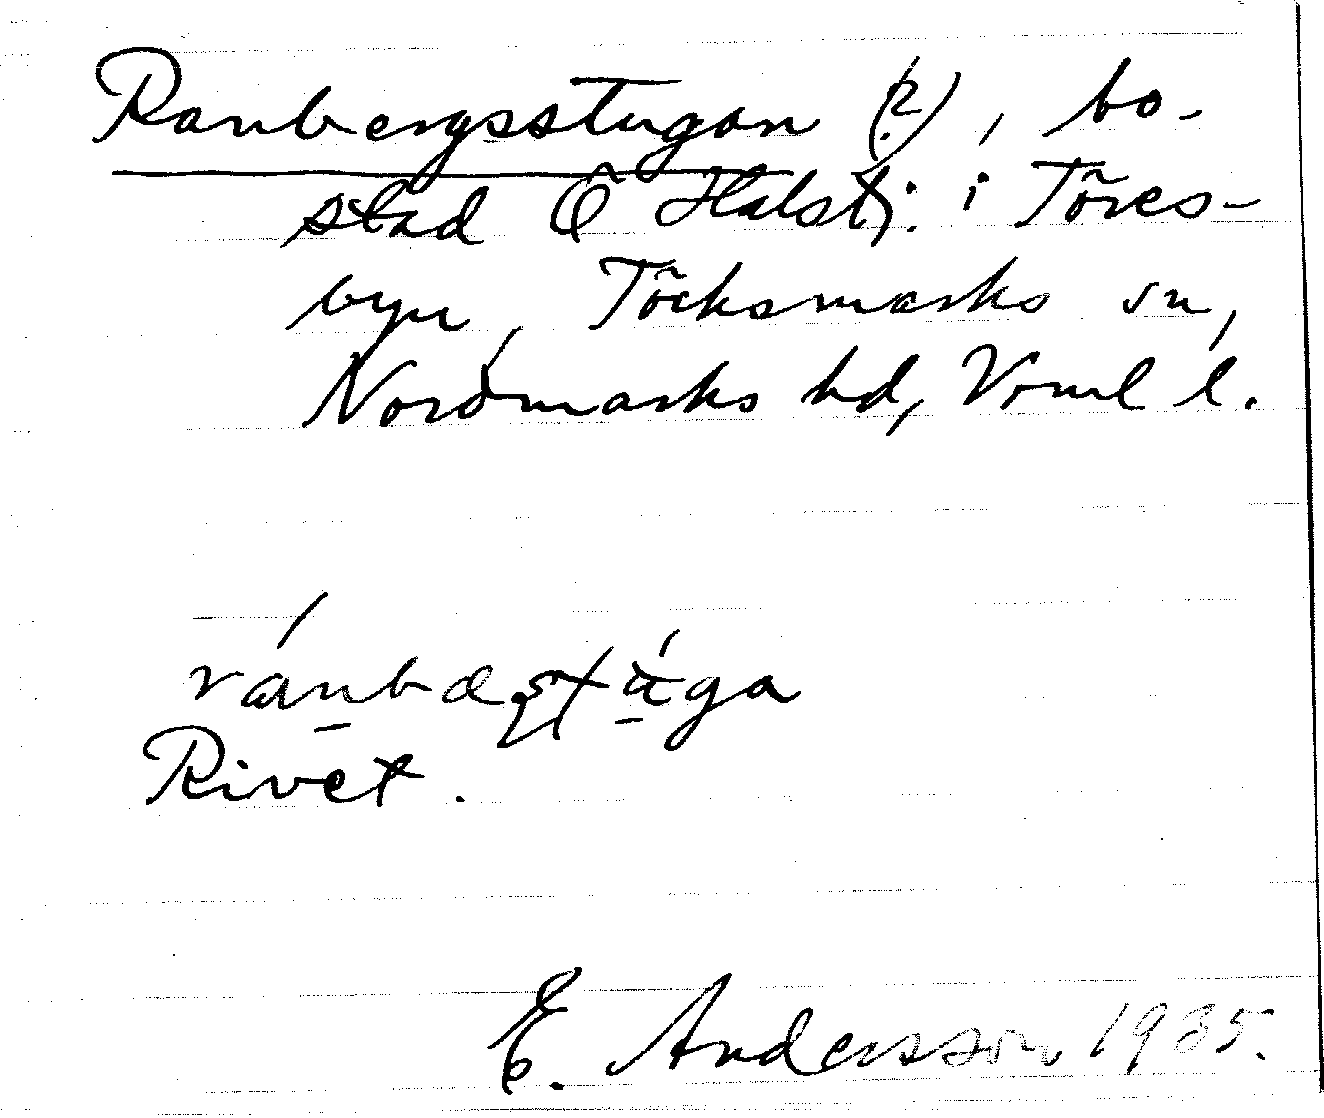 Ranbergsstugan (?), bo-
stad Ö Halstj. i Töres-
byn, Töcksmarks sn,
Nordmarks hd, Vrml l.
Rivet.
E. Andersson 1935.